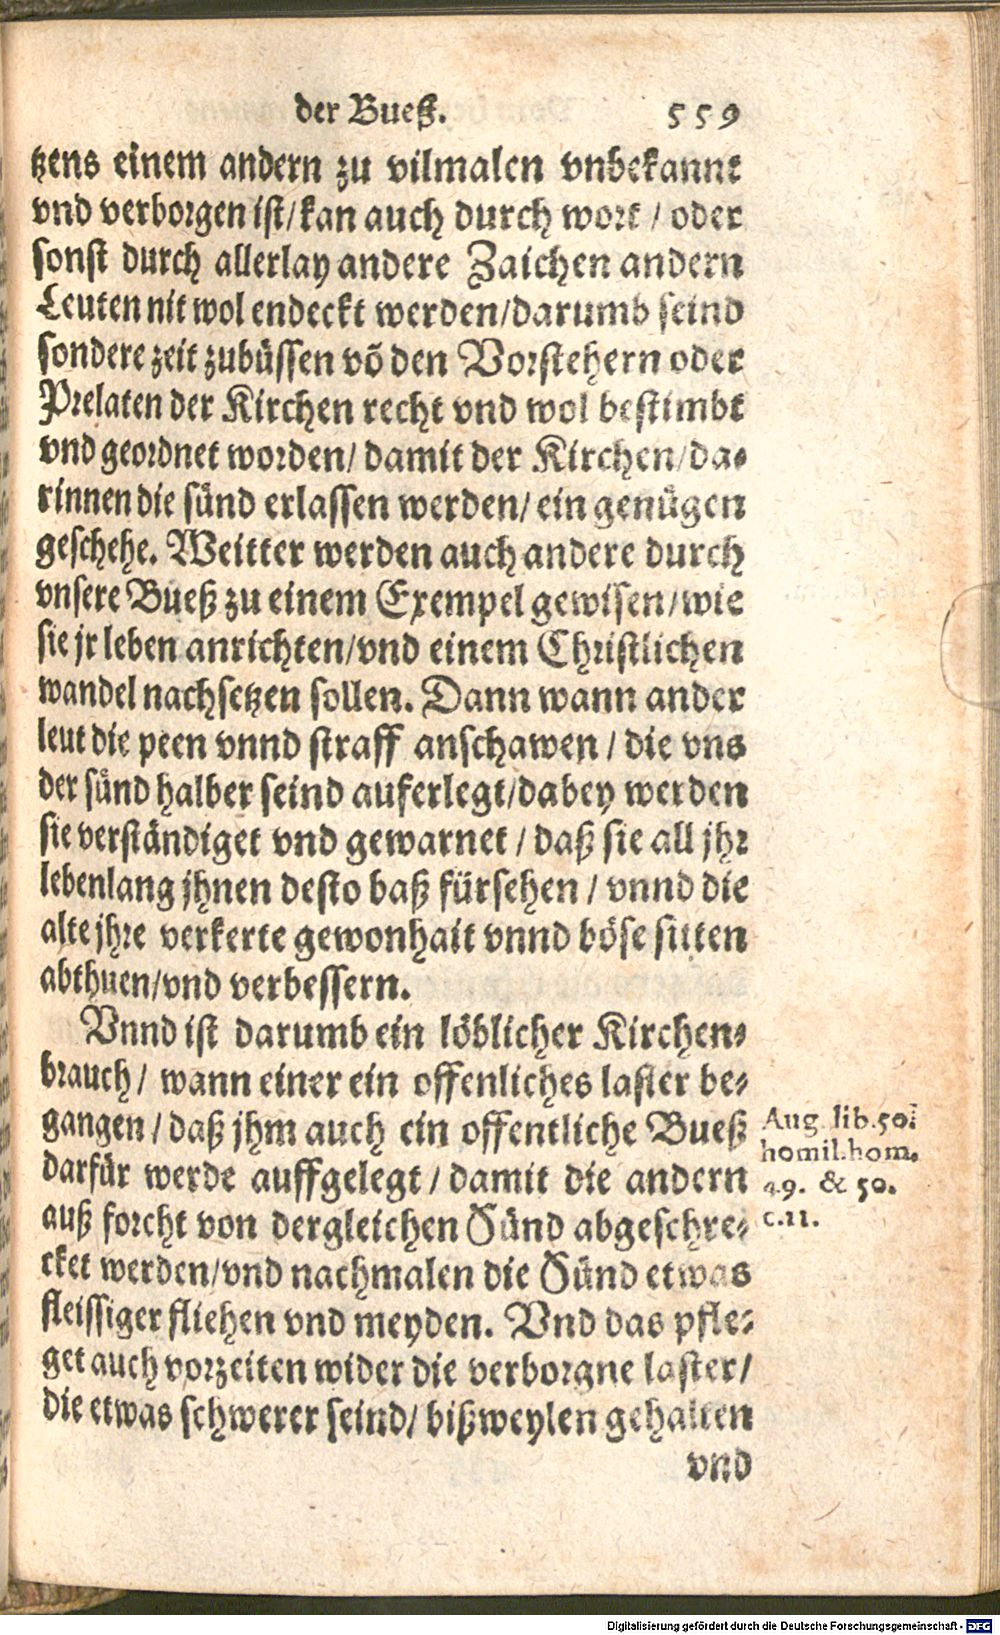 der Bueß. 559
tzens einem andern zu vilmalen vnbekannt
vnd verborgen ist/kan auch durch wort / oder
sonst durch allerlay andere Zaichen andern
Leuten nit wol endeckt werden/darumb seind
sondere zeit zubüssen võ den Vorstehern oder
Prelaten der Kirchen recht vnd wol bestimbt
vnd geordnet worden/ damit der Kirchen/da⸗
rinnen die sünd erlassen werden/ ein genügen
geschehe. Weitter werden auch andere durch
vnsere Bueß zu einem Exempel gewisen/wie
sie jr leben anrichten/vnd einem Christlichen
wandel nachsetzen sollen. Dann wann ander
leut die peen vnnd straff anschawen / die vns
der sünd halber seind auferlegt/dabey werden
sie verständiget vnd gewarnet / daß sie all jhr
lebenlang jhnen desto baß fürsehen / vnnd die
alte jhre verkerte gewonhait vnnd böse sitten
abthuen/vnd verbessern.
Vnnd ist darumb ein löblicher Kirchen⸗
brauch/ wann einer ein offenliches laster be⸗
gangen / daß jhm auch ein offentliche Bueß
darfür werde auffgelegt / damit die andern
auß forcht von dergleichen Sünd abgeschre⸗
cket werden/vnd nachmalen die Sünd etwas
fleissiger fliehen vnd meyden. Vnd das pfle⸗
get auch vorzeiten wider die verborgne laster/
die etwas schwerer seind/ bißweylen gehalten
vnd
Aug. lib. 50.
homil. hom.
49. & 50.
c. 11.
Digitalisierung gefördert durch die Deutsche Forschungsgemeinschaft - DFG